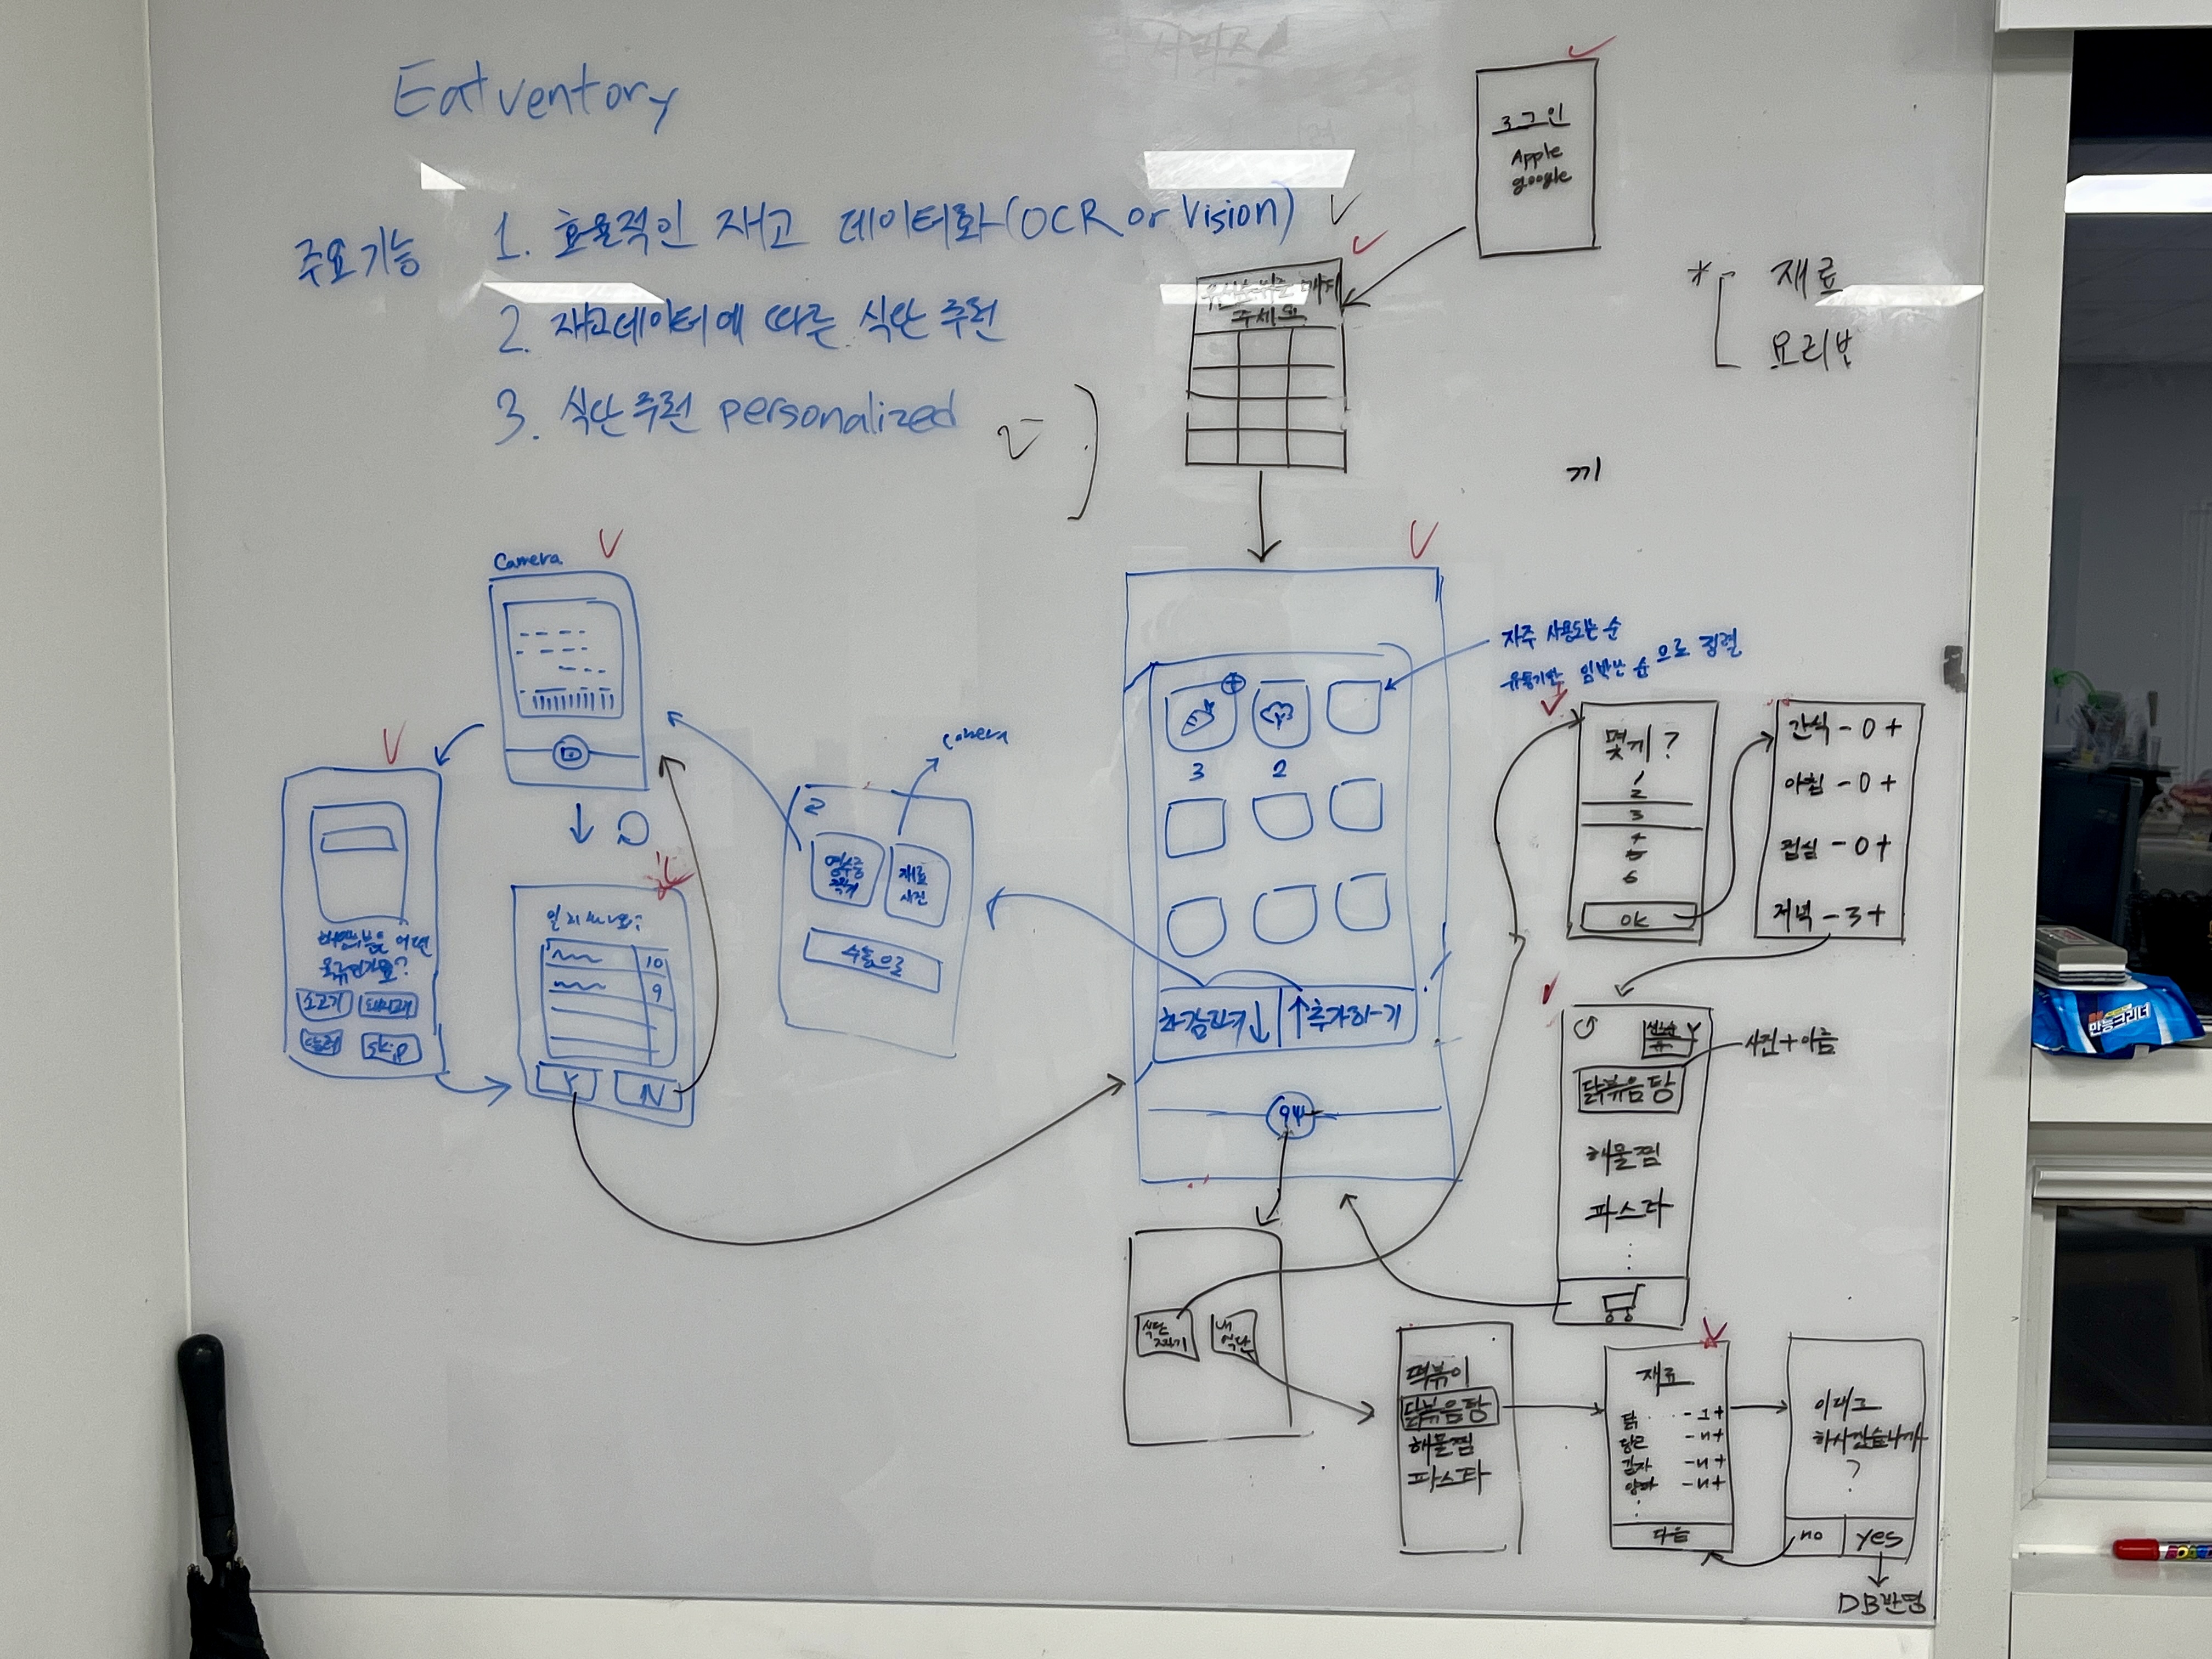 Eatventory
주요기능
1. 효율적인 재고 데이터화(OCR or Vision)
2. 재고데이터에 따른 식단 추천
3. 식단추천 personalized
로그인
Apple
google
주세요
* 재료
요리법
끼
Camera
일치하나요?
10
9
Y
N
소고기
돼지고기
skip
2
영수증
찍기
재료
사진
수동으로
camera
3
2
차감하기↓
↑추가하기
자주 사용되는 순
유통기한 임박한 순 으로 정렬
몇끼?
1
2
3
4
5
6
OK
간식 - 0 +
아침 - 0 +
점심 - 0 +
저녁 - 3 +
닭볶음탕
해물찜
파스타
사진+이름
식단
짜기
내
식단
떡볶이
닭볶음탕
해물찜
파스타
재료
닭 - 1 +
당근 - n +
감자 - n +
양파 - n +
다음
이대로
하시겠습니까
?
no
yes
DB반영
만능크리너